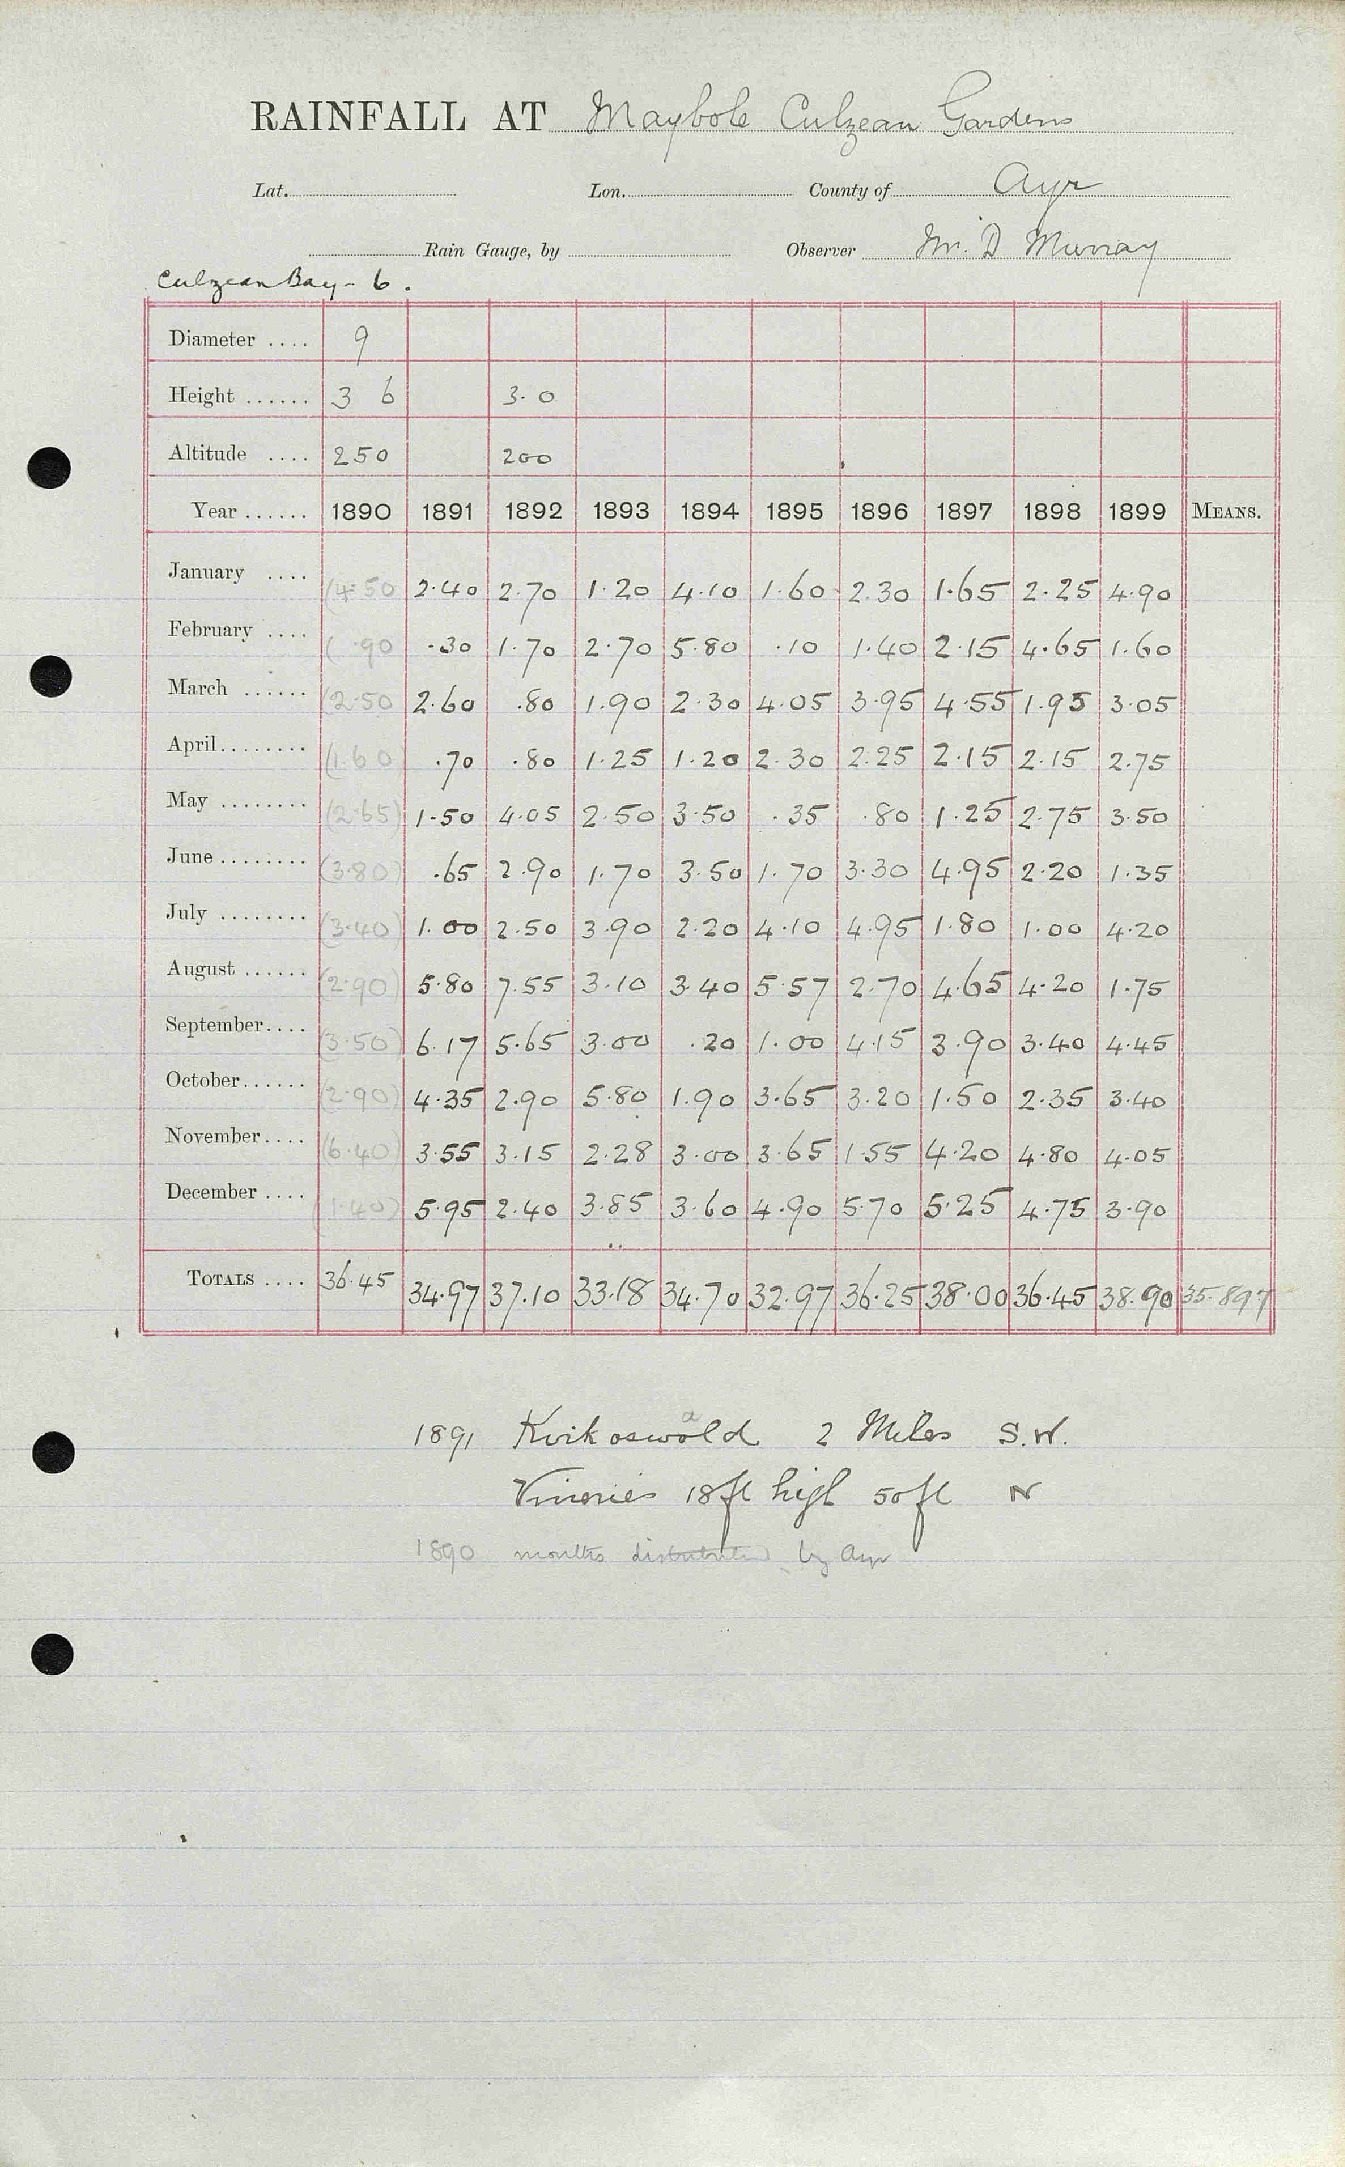 RAINFALL AT Maybole Culzean Gardens
Lat. Lon. County of Ayr
Rain Gauge, by Observer Mr. D Murray
Culzean Bay - 6.
Diameter .... 9
Height ...... 3 6 3.0
Altitude .... 250 200
Year ...... 1890 1891 1892 1893 1894 1895 1896 1897 1898 1899 MEANS.
January .... (4.50 2.40 2.70 1.20 4.10 1.60 2.30 1.65 2.25 4.90
February .... ( .90 .30 1.70 2.70 5.80 .10 1.40 2.15 4.65 1.60
March ...... (2.50 2.60 .80 1.90 2.30 4.05 3.95 4.55 1.95 3.05
April ........ (1.60) .70 .80 1.25 1.20 2.30 2.25 2.15 2.15 2.75
May ........ (2.65) 1.50 4.05 2.50 3.50 .35 .80 1.25 2.75 3.50
June ........ (3.80) .65 2.90 1.70 3.50 1.70 3.30 4.95 2.20 1.35
July ........ (3.40) 1.00 2.50 3.90 2.20 4.10 4.95 1.80 1.00 4.20
August ...... (2.90) 5.80 7.55 3.10 3.40 5.57 2.70 4.65 4.20 1.75
September.... (3.50) 6.17 5.65 3.00 .20 1.00 4.15 3.90 3.40 4.45
October...... (2.90) 4.35 2.90 5.80 1.90 3.65 3.20 1.50 2.35 3.40
November.... (6.40) 3.55 3.15 2.28 3.00 3.65 1.55 4.20 4.80 4.05
December .... (1.40) 5.95 2.40 3.85 3.60 4.90 5.70 5.25 4.75 3.90
TOTALS .... 36.45 34.97 37.10 33.18 34.70 32.97 36.25 38.00 36.45 38.90 35.897
1891 Kirkoswald 2 Miles S.W.
Vineries 18ft high 50ft N
1890 months distributed by Ayr